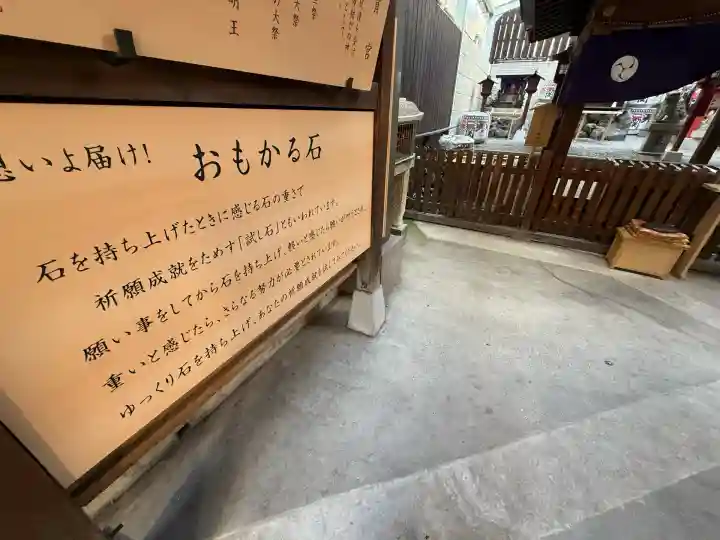 宮
の大祭
大祭
明王
思いよ届け!
おもかる石
石を持ち上げたときに感じる石の重さで
祈願成就をためす「試し石」ともいわれています。
願い事をしてから石を持ち上げ、軽いと感じたら願いが叶うとされ、
重いと感じたら、さらなる努力が必要とされています。
ゆっくり石を持ち上げ、あなたの祈願成就を試してみてください。